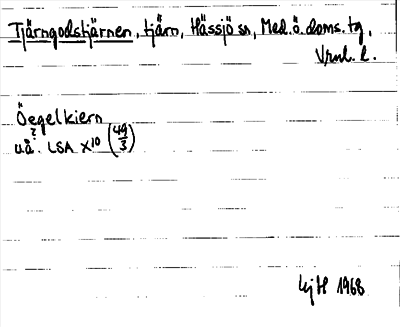 Tjärngodstjärnen, tjärn, Hässjö sn, Med. ö. doms. tg,
Vrnl. l.
Öegelkiern
?
u.å. LSA X10 (49/3)
LjH 1968